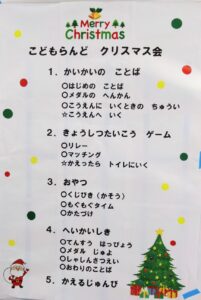 Merry
Christmas
こどもらんど クリスマス会
1．かいかいの ことば
○はじめの ことば
○メダルの へんかん
○こうえんに いくときの ちゅうい
☆こうえんへ いく
2．きょうしつたいこう ゲーム
○リレー
○マッチング
☆かえったら トイレにいく
3．おやつ
○くじびき（かそう）
○もぐもぐタイム
○かたづけ
4．へいかいしき
○てんすう はっぴょう
○メダル じゅよ
○しゃしんさつえい
○おわりのことば
5．かえるじゅんび